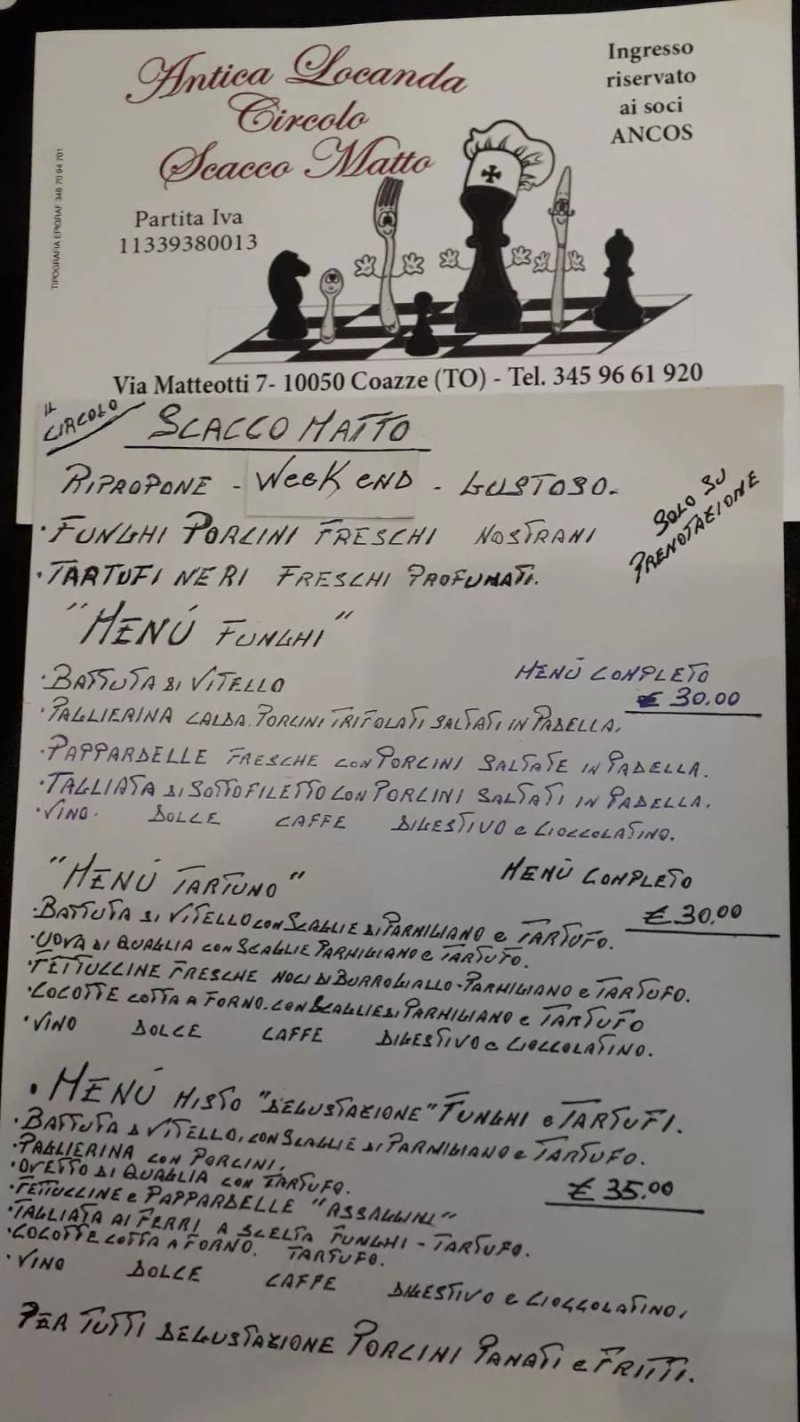 Antica Locanda
Circolo
Scacco Matto
Ingresso
riservato
ai soci
ANCOS
Partita Iva
11339380013
TIPOGRAFIA EPIGRAF 346 70 94 701
Via Matteotti 7- 10050 Coazze (TO) - Tel. 345 96 61 920
IL CIRCOLO SCACCO MATTO
RIPROPONE - WEEK END - GUSTOSO.
SOLO SU
PRENOTAZIONE
• FUNGHI PORCINI FRESCHI NOSTRANI
• TARTUFI NERI FRESCHI PROFUMATI.
"MENÚ FUNGHI"
MENÙ COMPLETO
€ 30.00
• BATTUTA DI VITELLO
• PAGLIERINA CALDA. PORCINI TRIFOLATI SALTATI IN PADELLA.
• PAPPARDELLE FRESCHE CON PORCINI SALTATE IN PADELLA.
• TAGLIATA DI SOTTOFILETTO CON PORCINI SALTATI IN PADELLA.
• VINO. DOLCE CAFFE DIGESTIVO e CIOCCOLATINO.
"MENÚ TARTUNO"
MENÙ COMPLETO
€ 30.00
• BATTUTA DI VITELLO CON SCAGLIE DI PARMIGIANO e TARTUFO.
• UOVA DI QUAGLIA CON SCAGLIE PARMIGIANO e TARTUFO.
• FETTUCCINE FRESCHE NOCI DI BURRO GIALLO - PARMIGIANO e TARTUFO.
• COCOTTE COTTA A FORNO. CON SCAGLIE DI PARMIGIANO e TARTUFO
• VINO DOLCE CAFFE DIGESTIVO e CIOCCOLATINO.
• MENÚ MISTO "DEGUSTAZIONE" FUNGHI e TARTUFI.
• BATTUTA DI VITELLO, CON SCAGLIE DI PARMIGIANO e TARTUFO.
• PAGLIERINA CON PORCINI.
• OVETTO DI QUAGLIA CON TARTUFO.
€ 35.00
• FETTUCCINE e PAPPARDELLE "ASSAGGINI"
• TAGLIATA AI FERRI A SCELTA FUNGHI - TARTUFO.
• COCOTTE COTTA A FORNO. TARTUFO.
• VINO DOLCE CAFFE DIGESTIVO e CIOCCOLATINO.
PER TUTTI DEGUSTAZIONE PORCINI PANATI e FRITTI.